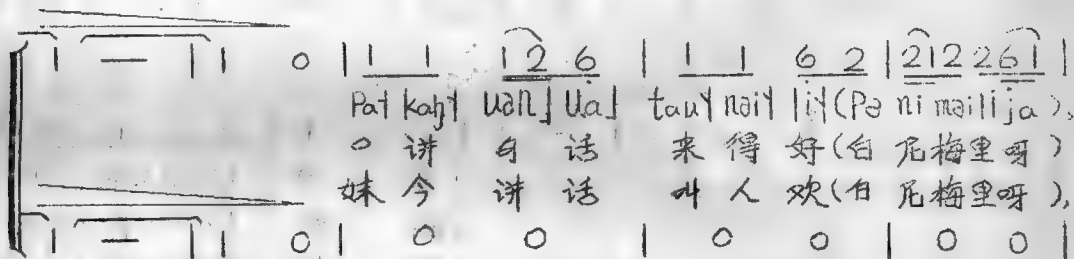 1 — 1 | 1 0 | 1 1 1 2 6 | 1 1 6 2 | 2 1 2 2 6 1 |
Pa˧ kaŋ˦ uən˩ ua˩ tau˦ nəi˦ li˦ (Pə ni məi li ja),
0 讲 句 话 来 得 好 (白 尼 梅 里 呀)
妹 今 讲 话 叫 人 欢 (白 尼 梅 里 呀),
1 — 1 | 1 0 | 0 0 | 0 0 | 0 0 |